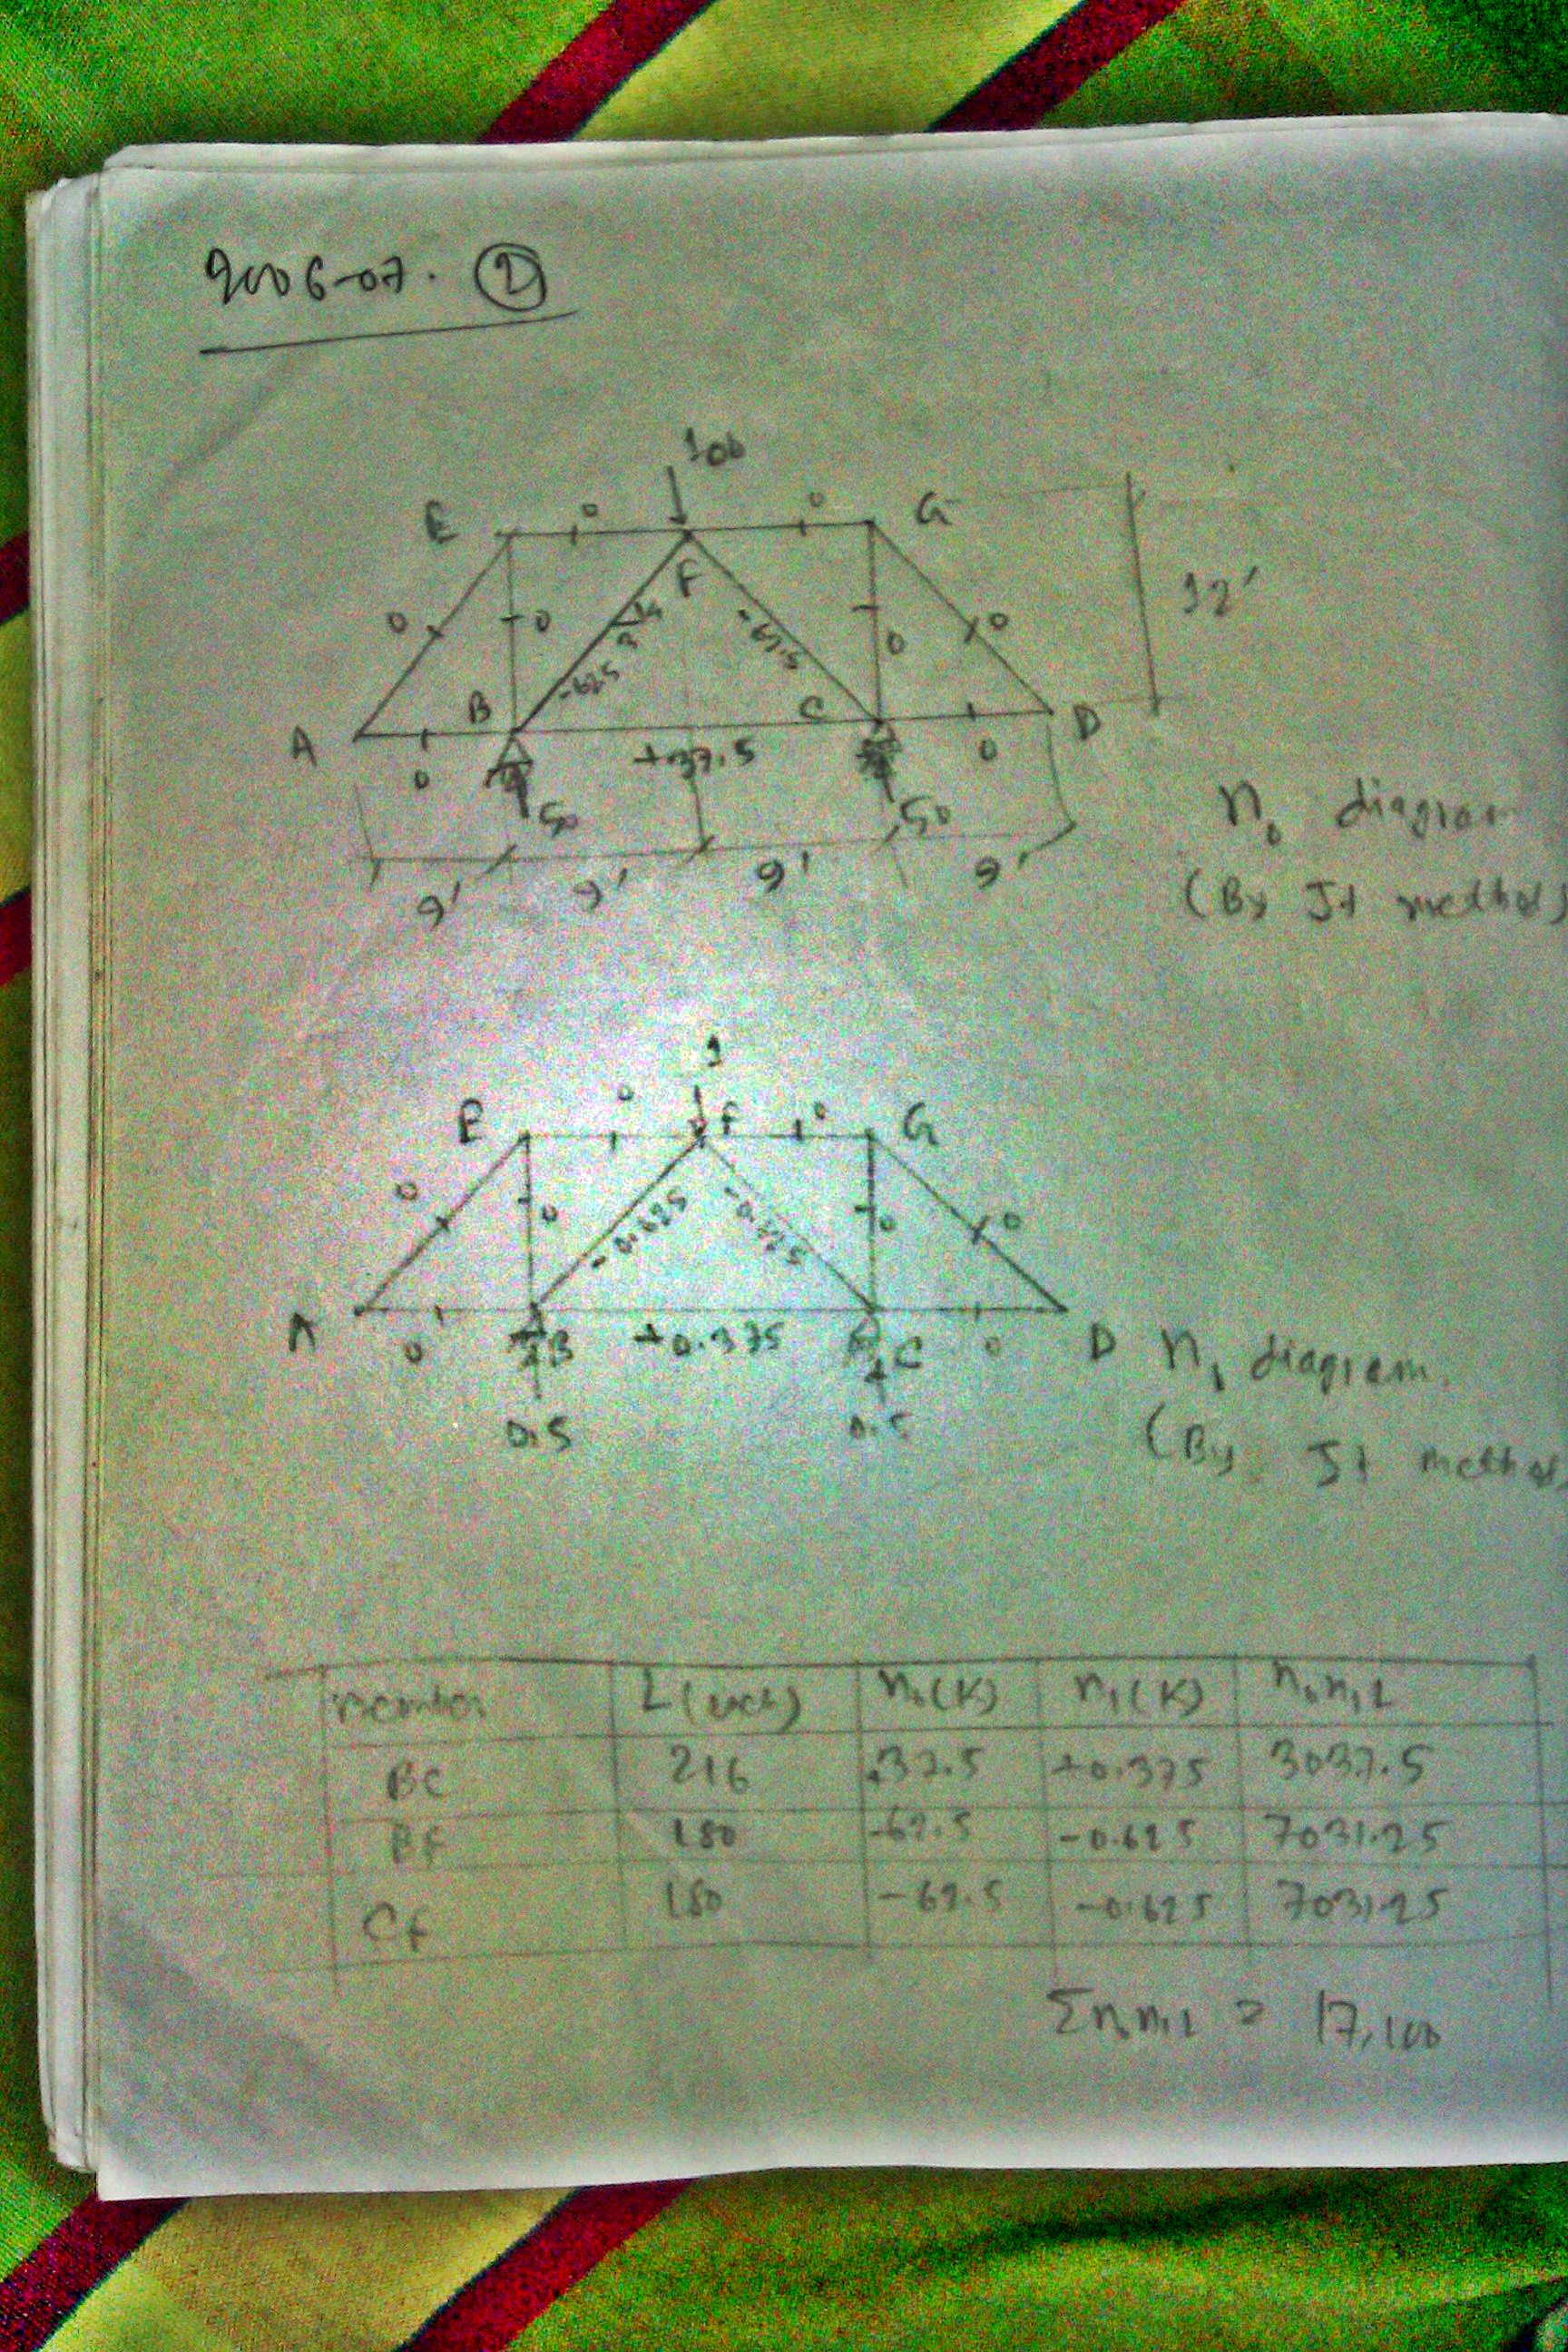 2006-07. ②
100
E 0 0 G
F
0 0 -62.5 0 0 12'
-625 3 4
A B C D
0 +37.5 0
50 50
9' 9' 9' 9'
n₀ diagram
(By Jt method)
1
E 0 F 0 G
0 0 -0.625 -0.625 0 0
A 0 B +0.375 C 0 D
0.5 0.5
n₁ diagram.
(By Jt method
member L (inch) n₀(K) n₁(K) n₀n₁L
BC 216 +37.5 +0.375 3037.5
BF 180 -62.5 -0.625 7031.25
CF 180 -62.5 -0.625 7031.25
Σn₀n₁L = 17,100